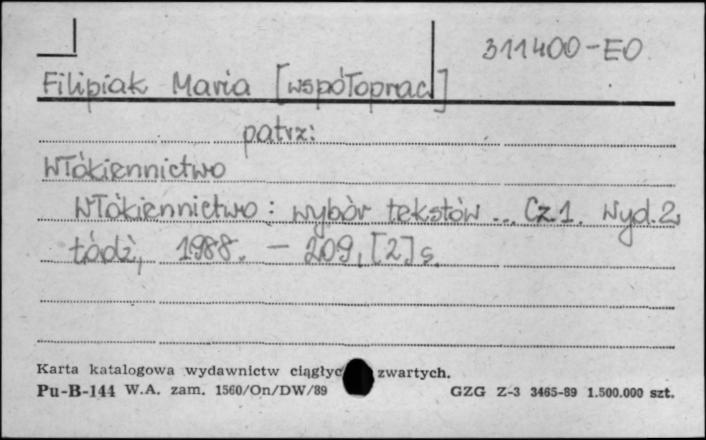 311400-EO
Filipiak Maria [współoprac.]
patrz:
Włókiennictwo
Włókiennictwo : wybór tekstów ... Cz.1. Wyd.2.
Łódź, 1988. — 209, [2] s.
Karta katalogowa wydawnictw ciągłyc zwartych.
Pu-B-144 W.A. zam. 1560/On/DW/89 GZG Z-3 3465-89 1.500.000 szt.